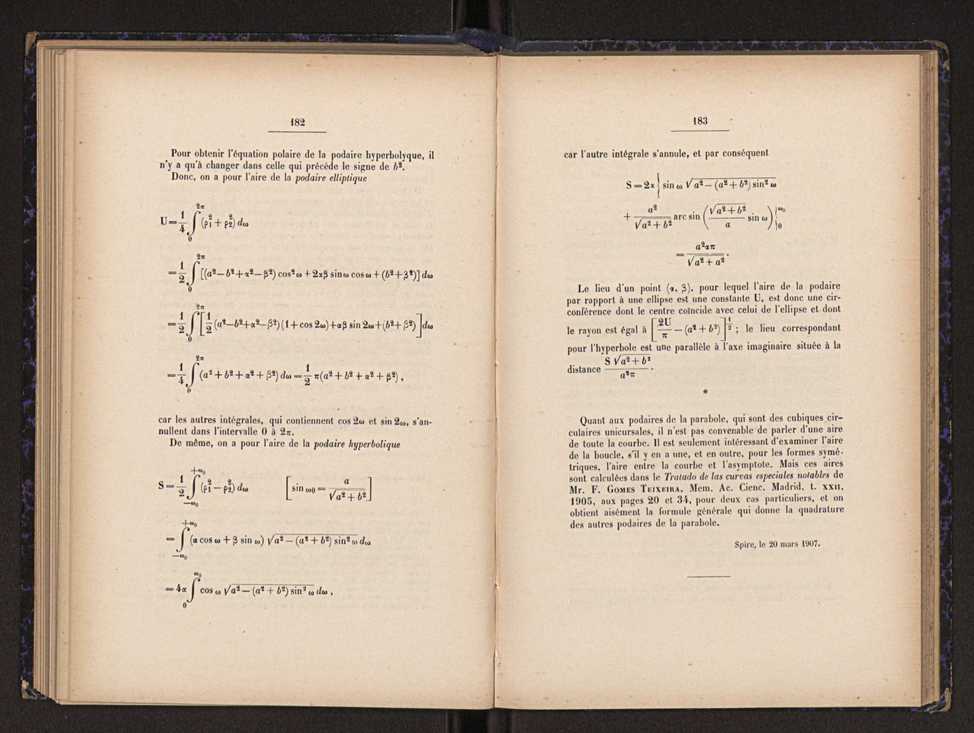 182
Pour obtenir l'équation polaire de la podaire hyperbolyque, il
n'y a qu'à changer dans celle qui précède le signe de b².
Donc, on a pour l'aire de la podaire elliptique
U = 1/4 ∫₀^{2π} (ρ₁² + ρ₂²) dω
= 1/2 ∫₀^{2π} [(a² − b² + α² − β²) cos² ω + 2αβ sin ω cos ω + (b² + β²)] dω
= 1/2 ∫₀^{2π} [1/2 (a² − b² + α² − β²) (1 + cos 2ω) + αβ sin 2ω + (b² + β²)] dω
= 1/4 ∫₀^{2π} (a² + b² + α² + β²) dω = 1/2 π(a² + b² + α² + β²) ,
car les autres intégrales, qui contiennent cos 2ω et sin 2ω, s'an-
nullent dans l'intervalle 0 à 2π.
De même, on a pour l'aire de la podaire hyperbolique
S = 1/2 ∫_{−ω₀}^{+ω₀} (ρ₁² − ρ₂²) dω [sin ω₀ = a / √(a² + b²)]
= ∫_{−ω₀}^{+ω₀} (α cos ω + β sin ω) √(a² − (a² + b²) sin² ω) dω
= 4α ∫₀^{ω₀} cos ω √(a² − (a² + b²) sin² ω) dω ,
183
car l'autre intégrale s'annule, et par conséquent
S = 2α { sin ω √(a² − (a² + b²) sin² ω)
+ a² / √(a² + b²) arc sin (√(a² + b²) / a sin ω) }₀^{ω₀}
= a²απ / √(a² + a²) .
Le lieu d'un point (α, β), pour lequel l'aire de la podaire
par rapport à une ellipse est une constante U, est donc une cir-
conférence dont le centre coïncide avec celui de l'ellipse et dont
le rayon est égal à [2U/π − (a² + b²)]^{1/2} ; le lieu correspondant
pour l'hyperbole est une parallèle à l'axe imaginaire située à la
distance S √(a² + b²) / a²π .
*
Quant aux podaires de la parabole, qui sont des cubiques cir-
culaires unicursales, il n'est pas convenable de parler d'une aire
de toute la courbe. Il est seulement intéressant d'examiner l'aire
de la boucle, s'il y en a une, et en outre, pour les formes symé-
triques, l'aire entre la courbe et l'asymptote. Mais ces aires
sont calculées dans le Tratado de las curvas especiales notables de
Mr. F. GOMES TEIXEIRA, Mem. Ac. Cienc. Madrid, t. XXII,
1905, aux pages 20 et 34, pour deux cas particuliers, et on
obtient aisément la formule générale qui donne la quadrature
des autres podaires de la parabole.
Spire, le 20 mars 1907.